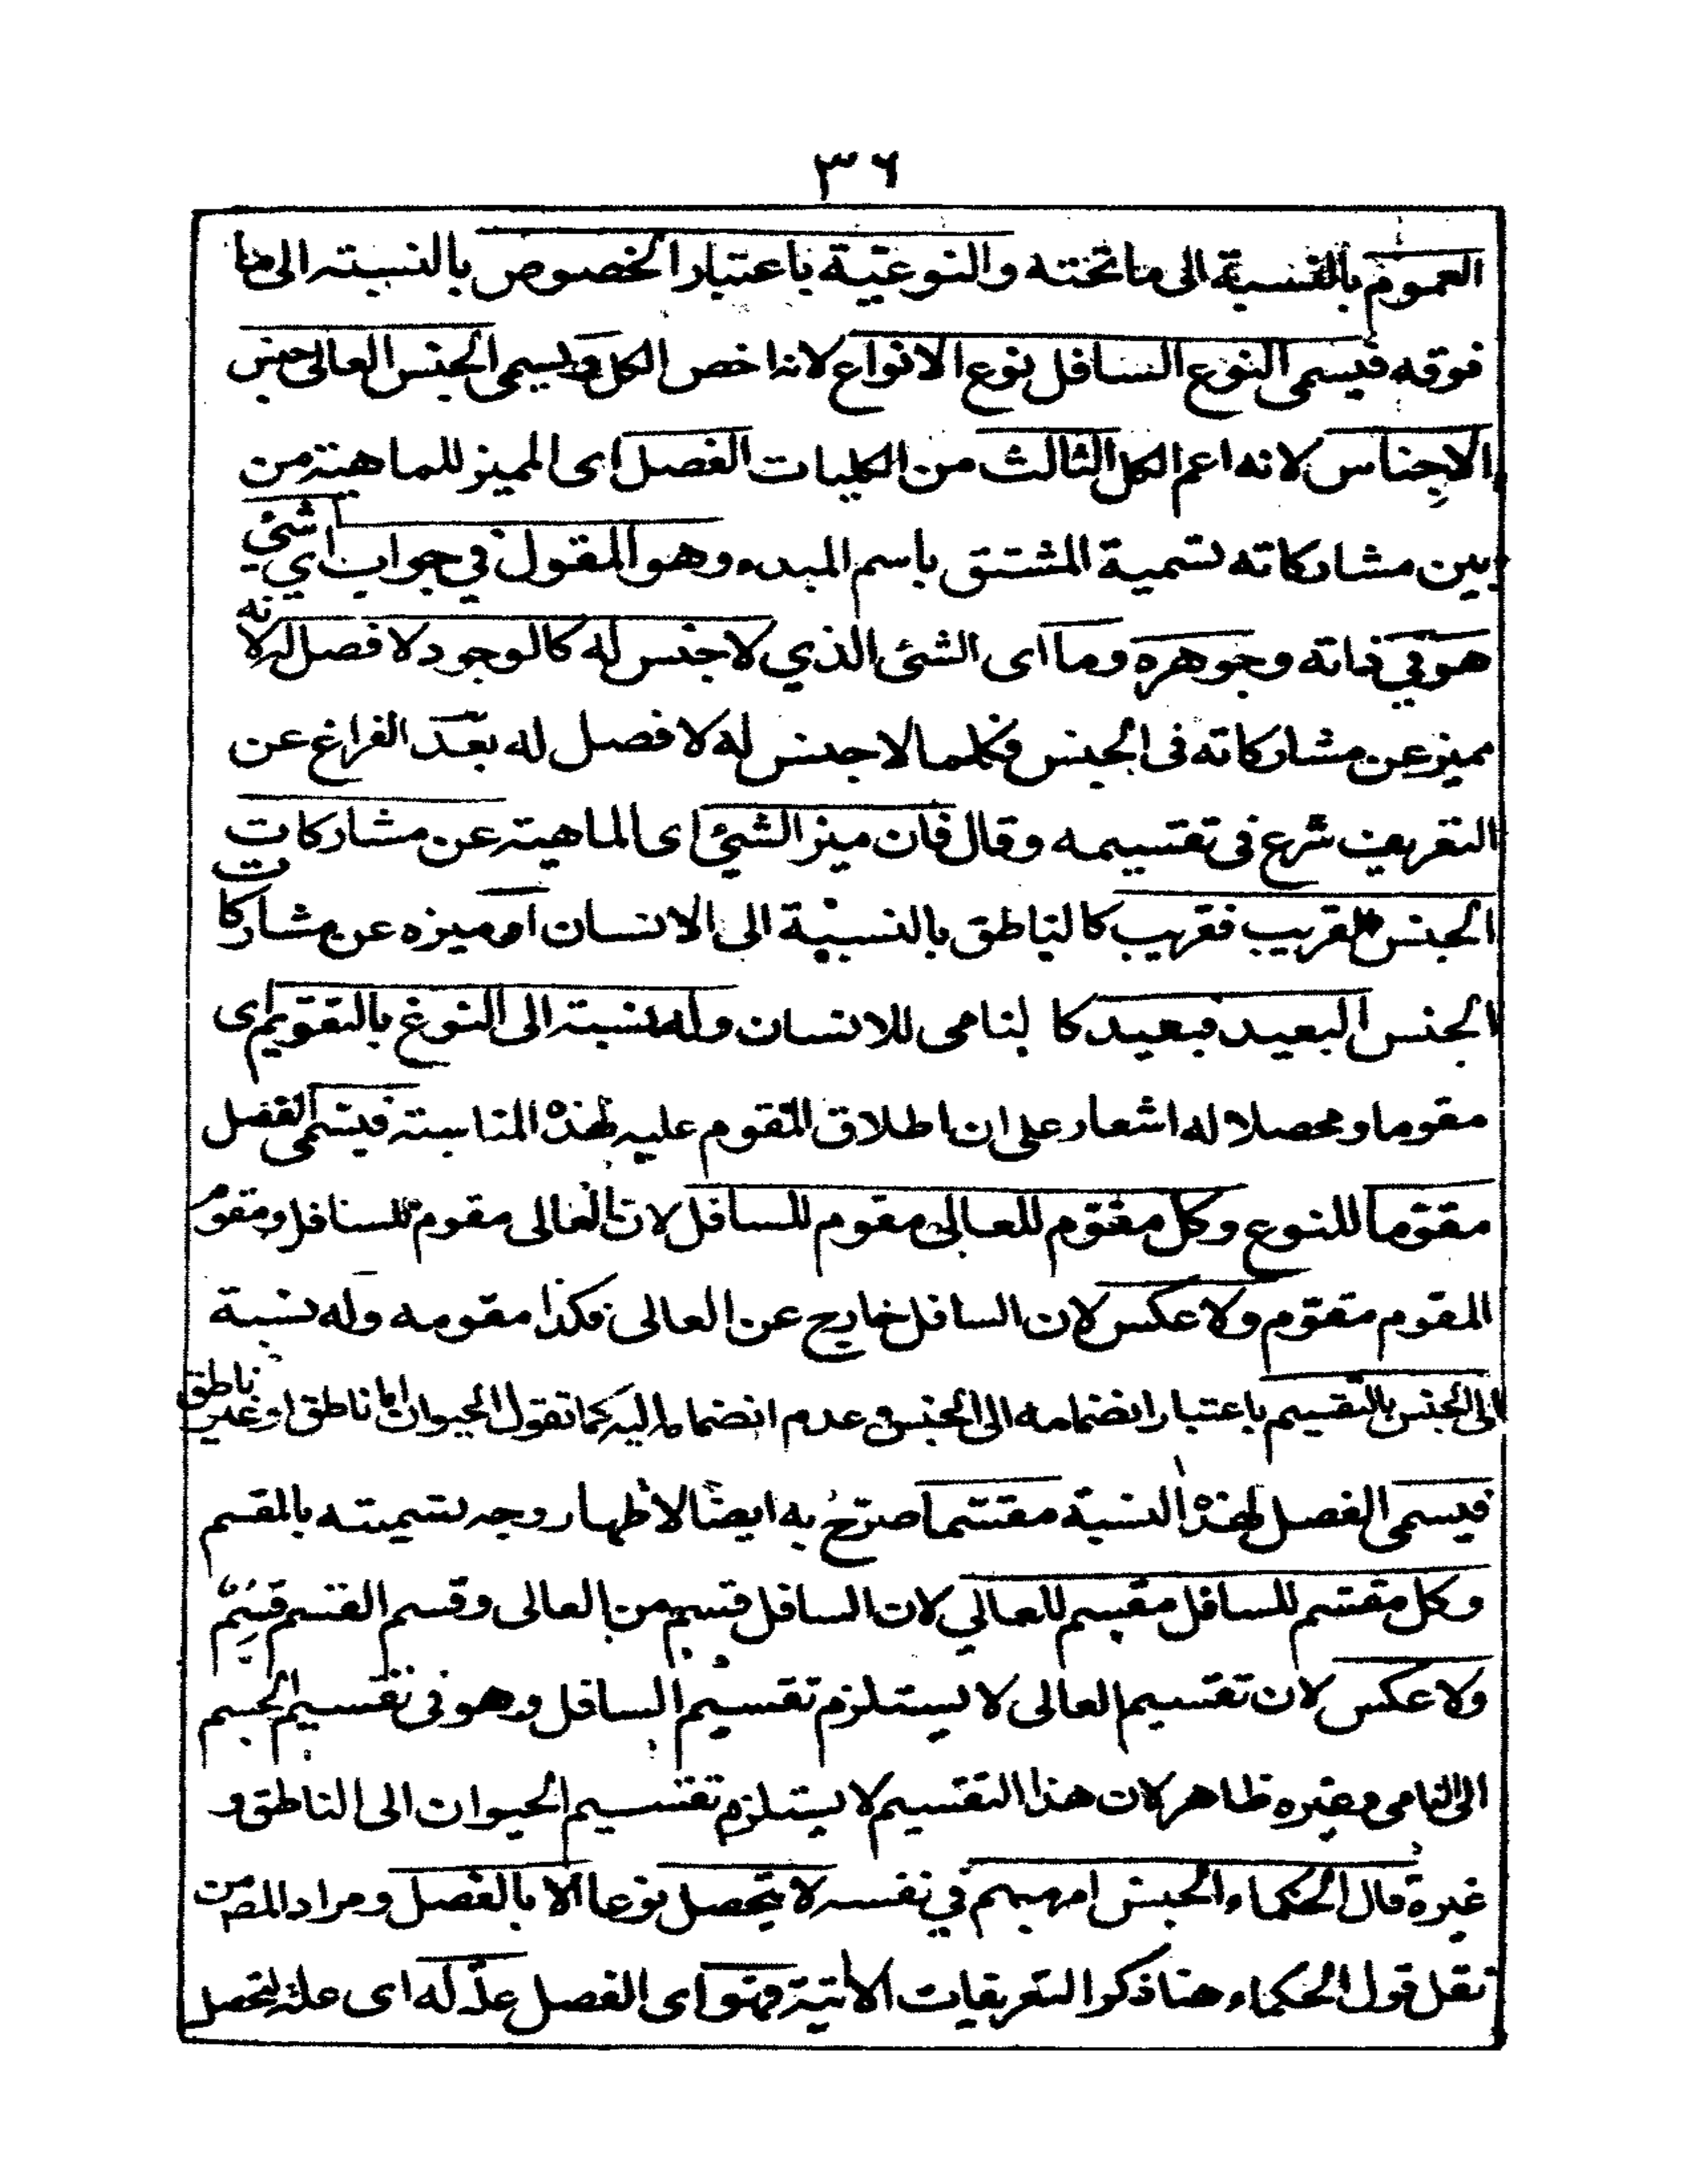 ٣٦
العموم بالنسبة الى ما تحته والنوعية باعتبار الخصوص بالنسبته الى ما
فوقه فيسمى النوع السافل نوع الانواع لانه اخص الكل ويسمى الجنس العالى جنس
الاجناس لانه اعم الكل الثالث من الكليات الفصل اى المميز للماهية من
بين مشاركاته تسمية المشتق باسم المبدء وهو المقول في جواب اي شئي
هو في ذاته وجوهره وما اى الشئ الذي لا جنس له كالوجود لا فصل له لانه
مميز عن مشاركاته فى الجنس فكلما لا جنس له لا فصل له بعد الفراغ عن
التعريف شرع فى تقسيمه وقال فان ميز الشئي اى الماهية عن مشاركات
الجنس القريب فقريب كالناطق بالنسبة الى الانسان او ميزه عن مشاركات
الجنس البعيد فبعيد كا لنامى للانسان وله نسبة الى النوع بالتقويم اى
مقوما ومحصلا له اشعار على ان اطلاق المقوم عليه لهذه المناسبة فيسمى الفصل
مقوما للنوع وكل مقوم للعالى مقوم للسافل لان العالى مقوم للسافل ومقوم
المقوم مقوم ولا عكس لان السافل خارج عن العالى فكذا مقومه وله نسبة
الى الجنس بالتقسيم باعتبار انضمامه الى الجنس وعدم انضمامه اليه كما تقول الحيوان اما ناطق او غير ناطق
فيسمى الفصل لهذه النسبة مقسما صرح به ايضا لاظهار وجه تسميته بالمقسم
وكل مقسم للسافل مقسم للعالي لان السافل قسم من العالى وقسم القسم قسم
ولا عكس لان تقسيم العالى لا يستلزم تقسيم السافل وهو فى تقسيم الجسم
الى النامى وغيره ظاهر لان هذا التقسيم لا يستلزم تقسيم الحيوان الى الناطق و
غيره قال الحكماء الجنس امر مبهم في نفسه لا يتحصل نوعا الا بالفصل ومراد المص من
نقل قول الحكماء هنا ذكر التعريفات الاتية فهو اى الفصل علة له اى علة لتحصل